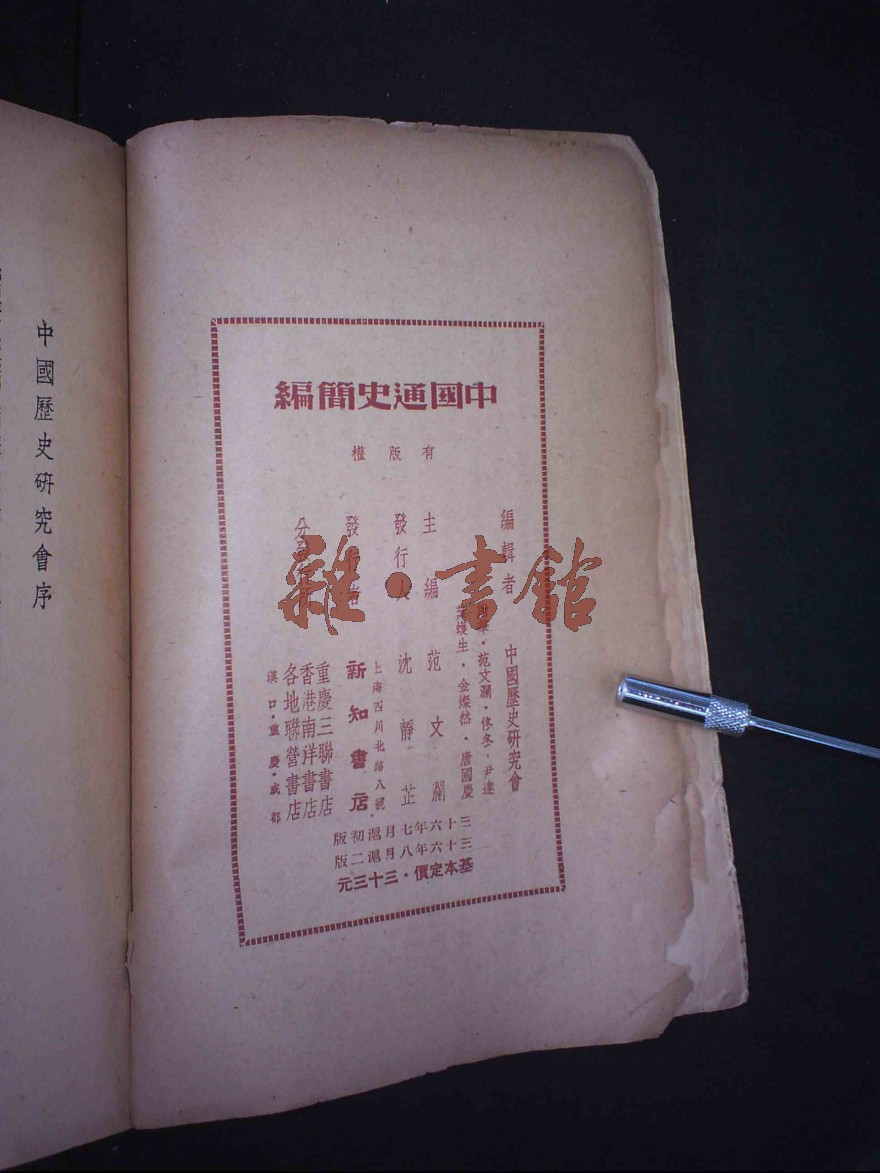 中國通史簡編
有版權
編輯者 中國歷史研究會
范文瀾・佟冬・尹達
葉蠖生・金燦然・唐國慶
主編 范文瀾
發行人 沈靜芷
發行者 新知書店
上海四川北路八號
分發行所 重慶三聯書店
香港南洋書店
各地聯營書店
漢口・重慶・成都
三十六年七月滬初版
三十六年八月滬二版
基本定價・三十三元
中國歷史研究會序
雜・書館